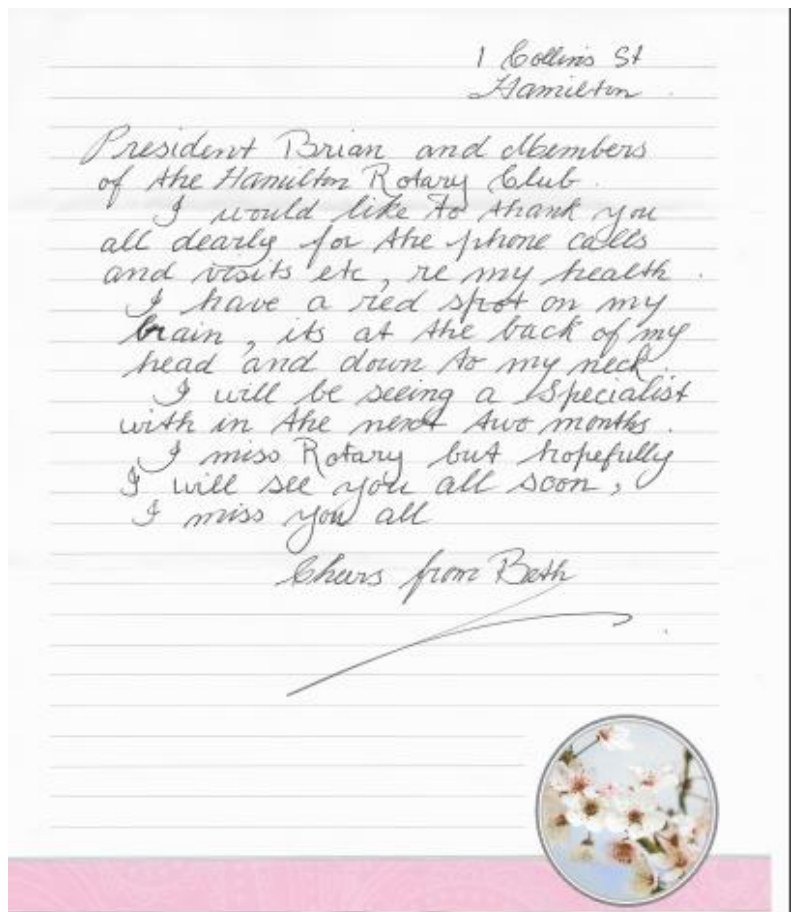 1 Collins St
Hamilton
President Brian and Members
of the Hamilton Rotary Club.
I would like to thank you
all dearly for the phone calls
and visits etc, re my health.
I have a red spot on my
brain, its at the back of my
head and down to my neck.
I will be seeing a Specialist
with in the next two months.
I miss Rotary but hopefully
I will see you all soon,
I miss you all
Cheers from Beth